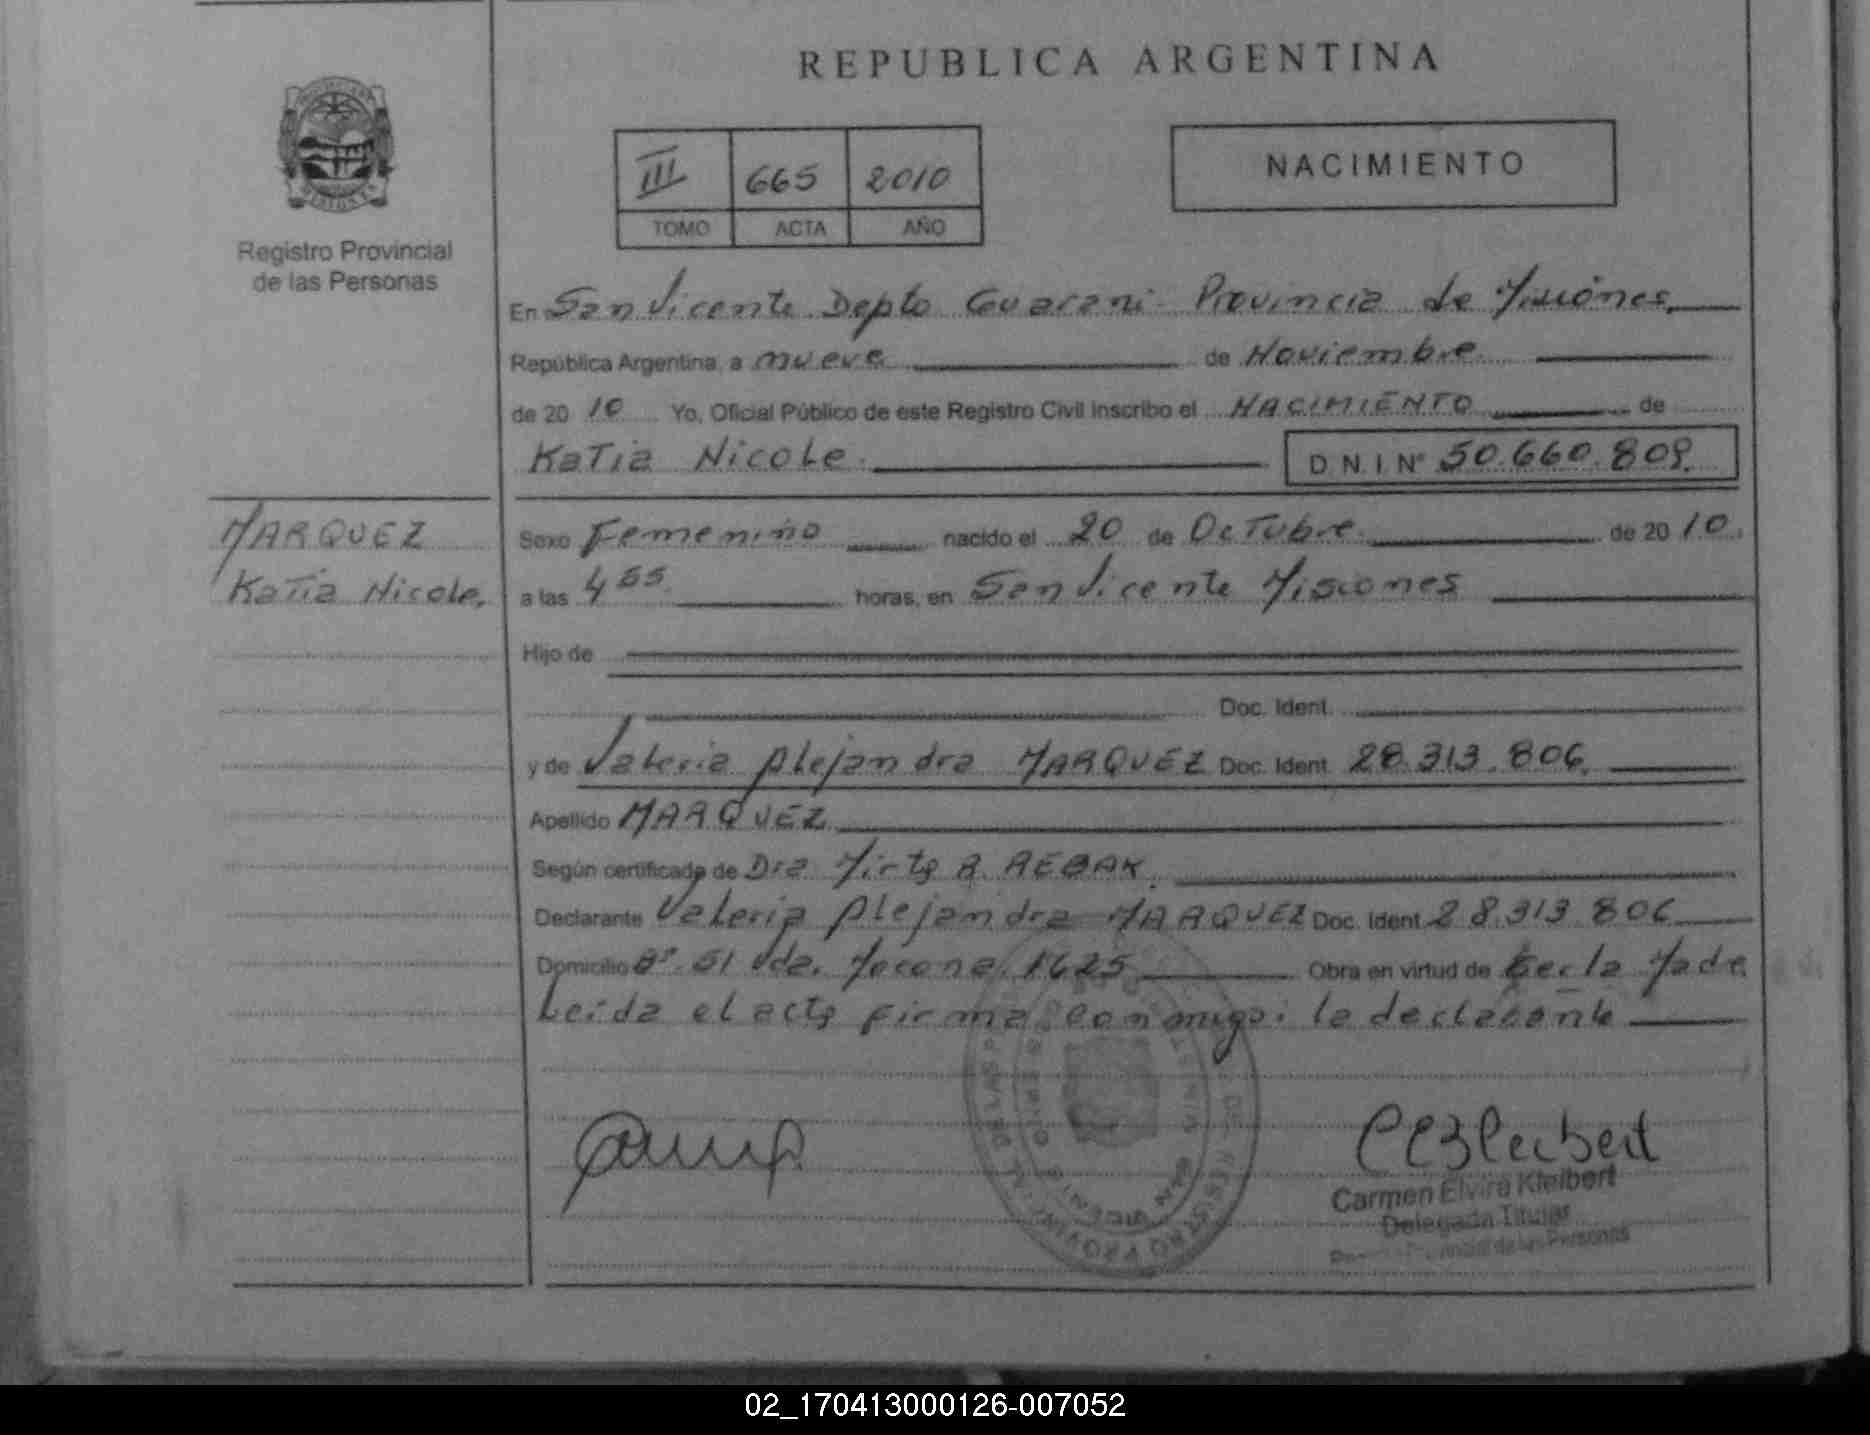 REPUBLICA ARGENTINA
III 665 2010
TOMO ACTA AÑO
NACIMIENTO
Registro Provincial
de las Personas
En San Vicente Depto Guarani Provincia de Misiones
República Argentina, a nueve de Noviembre
de 20 10 Yo, Oficial Público de este Registro Civil inscribo el NACIMIENTO de
Katia Nicole D.N.I Nº 50.660.809
MARQUEZ
Katia Nicole.
Sexo Femenino nacido el 20 de Octubre de 20 10.
a las 4 55 horas, en San Vicente Misiones
Hijo de
Doc. Ident.
y de Valeria Alejandra MARQUEZ Doc. Ident. 28.313.806.
Apellido MARQUEZ
Según certificado de Dra Mirta A. REBAK.
Declarante Valeria Alejandra MARQUEZ Doc. Ident. 28.313.806
Domicilio Bº 51 Vda. 1625 Obra en virtud de
Leida el acta firma conmigo: la declarante
Carmen Elvira Kleibert
Delegada Titular
Provincial de las Personas
02_170413000126-007052